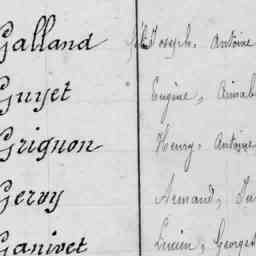 Galland Joseph, Antoine
Guyet Eugène, Aimab
Grignon Henry, Antoine
Gervy Armand, Ju
Ganivet Lucien, Georges